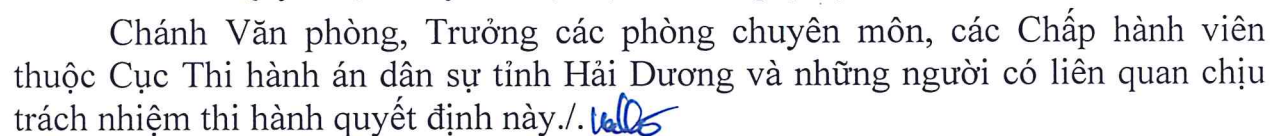 Chánh Văn phòng, Trưởng các phòng chuyên môn, các Chấp hành viên
thuộc Cục Thi hành án dân sự tỉnh Hải Dương và những người có liên quan chịu
trách nhiệm thi hành quyết định này./.